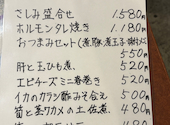 さしみ盛合せ 1,580円
ホルモンタレ焼き 1,180円
おつまみセット(煮豚、煮玉子
550円
肝と玉ひも煮 520円
エビチーズミニ春巻き 520円
イカのカラシ酢みそ合え 500円
筍と茎ワカメの土佐煮 480円
480円